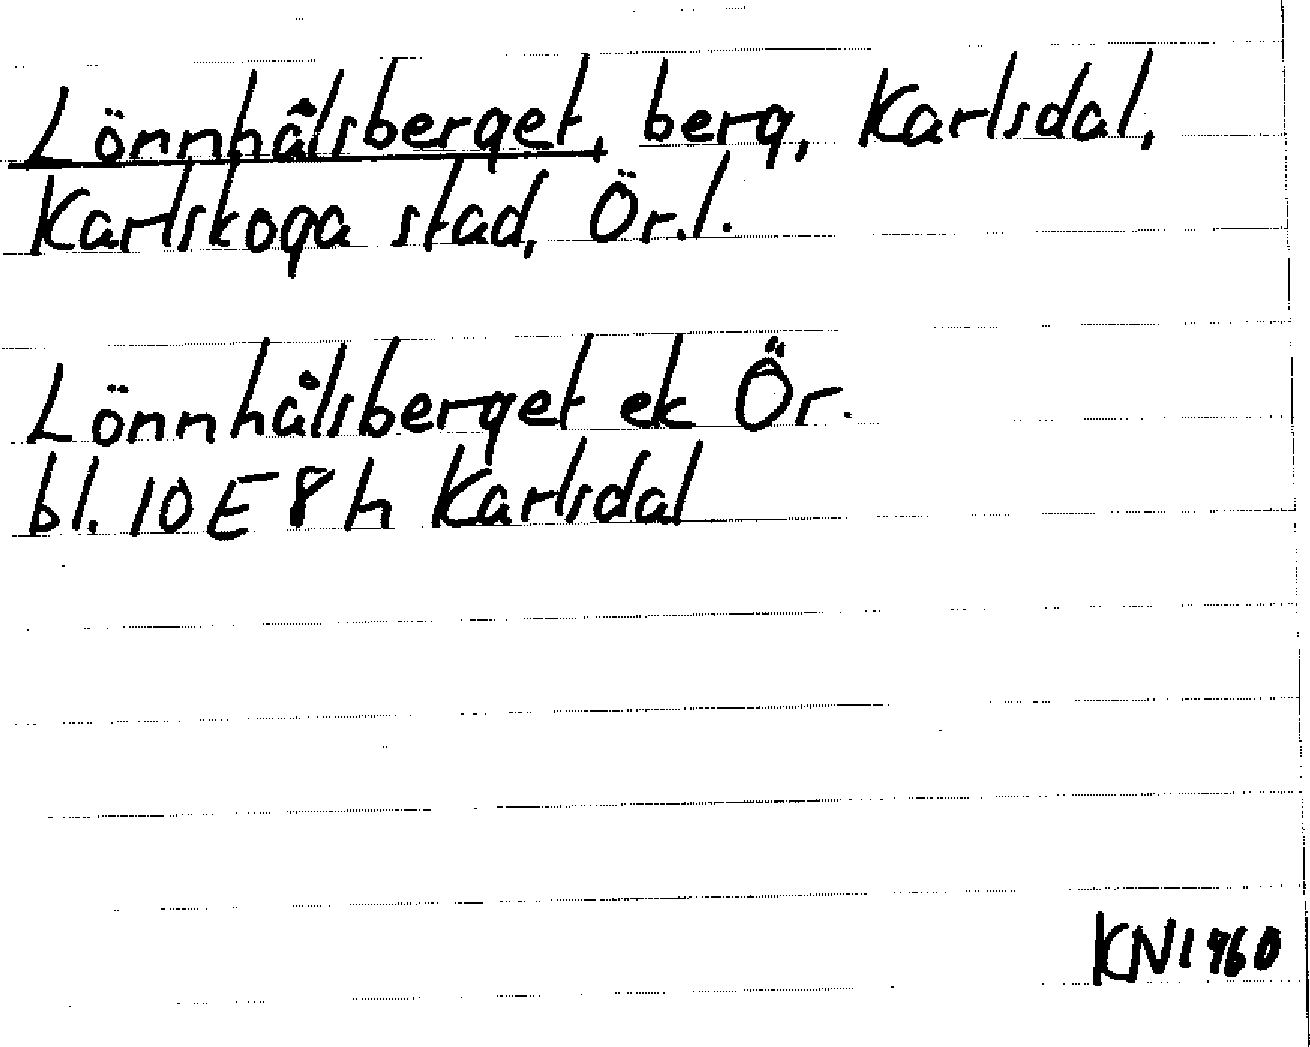 Lönnhålsberget, berg, Karlsdal,
Karlskoga stad, Ör.l.
Lönnhålsberget ek Ör.
bl. 10E 8h Karlsdal
KN1960